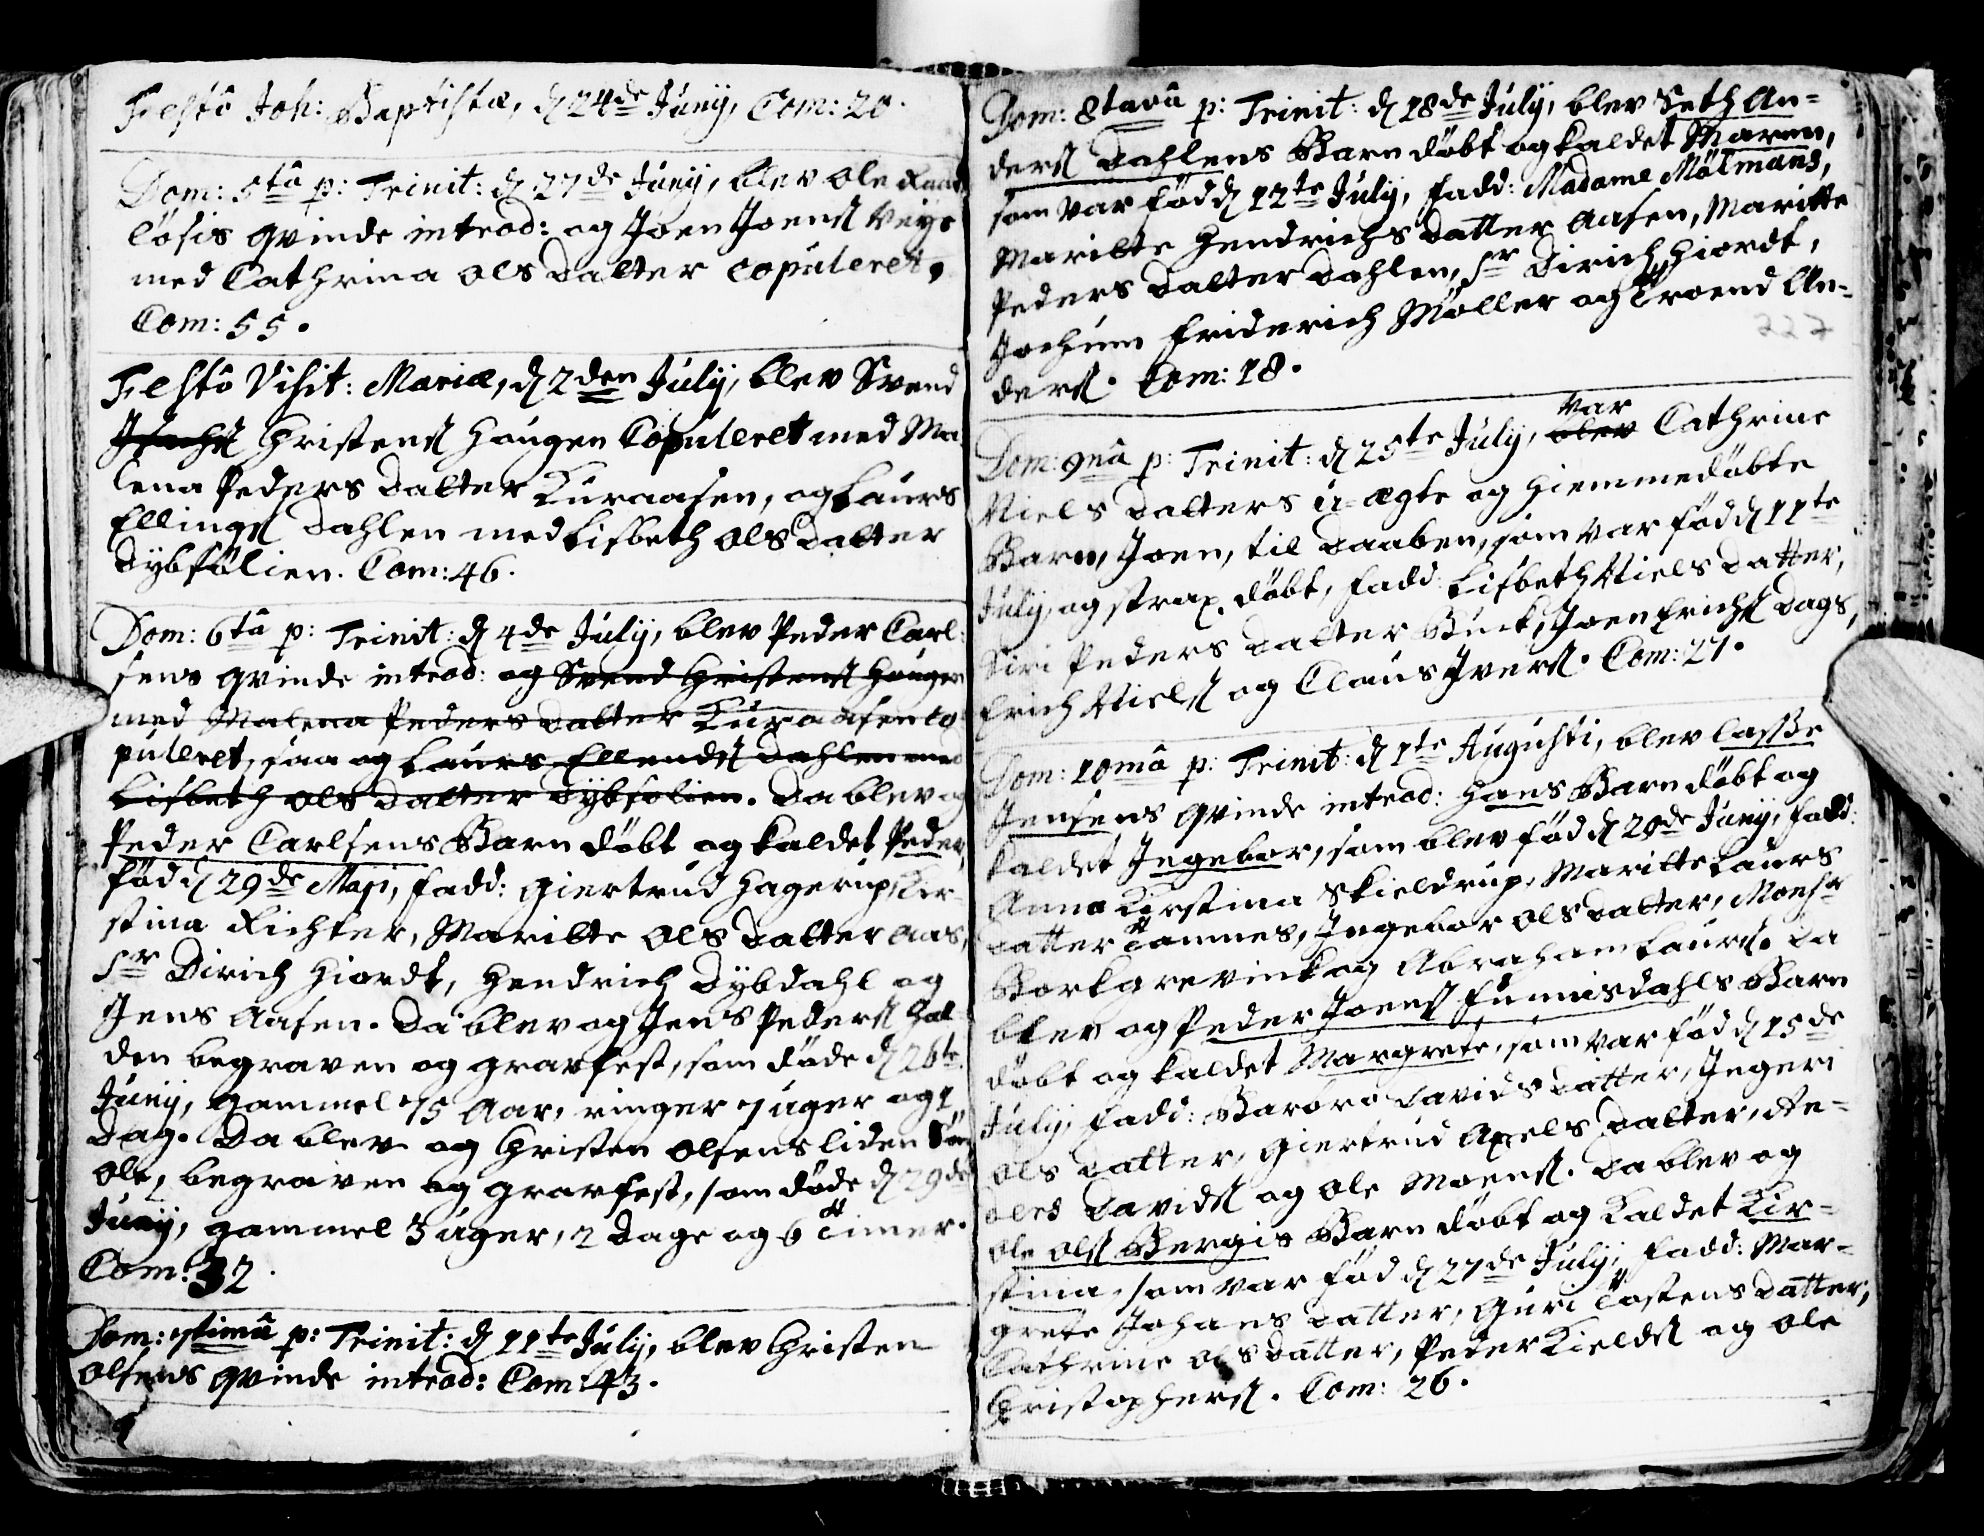 Festô Joh: Baptistæ, d 24de Junÿ, Com: 20.
Dom: 5tâ p: Trinit: d 27de Junÿ, blev Ole
løsis qvinde introd: og Joen Joens Veÿs
med Cathrina Ols Datter copuleret,
Com: 55.
Festô Visit: Mariæ, d 2den Julÿ, blev Svend
Christens Haugen Copuleret med Ma
lena Peders Datter Kuraasen, og Laurs
Ellings Dahlen med Lisbeth Ols Datter
Dÿbsølien. Com: 46.
Dom: 6tâ p: Trinit: d 4de Julÿ, blev Peder Carl-
sens qvinde introd: og Svend Christens Haugen
med Malena Peders Datter Kuraasen co
puleret, saa og Laurs Ellends Dahlen med
Lisbeth Ols Datter Dÿbsølien. Da blev og
Peder Carlsens Barn døbt og kaldet Peder,
fød d 29de Maji, fadd: Giertrud Hagerup, Kir-
stina Richter, Maritte Ols Datter Aas,
Sr Dirich Hiordt, Hendrich Dÿbdahl og
Jens Aasen. Da blev og Jens Peders Hal
den begraven og gravfest, som døde d 26te
Junÿ, gammel 75 Aar, ringer 7 uger og 1
Dag. Da blev og Christen Olsens liden Søn
Ole, begraven og gravfest, som døde d 29de
Junÿ, gammel 3 uger, 2 Dage og 6 Timer.
Com: 32.
Dom: 7timâ p: Trinit: d 11te Julÿ, blev Christen
Olsens qvinde introd: Com: 43.
Dom: 8tavâ p: Trinit: d 18de Julÿ, blev Seth An-
ders Dahlens Barn døbt og kaldet Maren,
som var fød d 12te Julÿ, fadd: Madame Mølmans,
Maritte Hendrichs Datter Aasen, Maritte
Peders Datter Dahlen, Sr Dirich Hiordt,
Jochum Friderich Møller og Troend An-
ders. Com: 18.
227
var
Dom: 9nâ p: Trinit: d 25te Julÿ, blev Cathrine
Niels Datters u-ægte og hiemmedøbte
Barn, Joen, til Daaben, som var fød d 11te
Julÿ, og strax døbt, fadd: Lisbeth Niels Datter,
Siri Peders Datter Buck, Joen Erichs Dags,
Erich Niels og Claus Ivers. Com: 27.
Dom: 10mâ p: Trinit: d 1te Augusti, blev Lasse
Jensens qvinde introd: Hans Barn døbt og
kaldet Ingebor, som blev fød d 29de Junÿ, fadd:
Anna Kirstina Skieldrup, Maritte Laurs
Datter Tamnes, Ingebor Ols Datter, Monsr
Borkgrevink og Abraham Laurs. Da
blev og Peder Joens Funnisdahls Barn
døbt og kaldet Margrete, som var fød d 15de
Julÿ, fadd: Baroro Davids Datter, Ingeri
Ols Datter, Giertrud Axels Datter, An-
ders Davids og Ole Moens. Da blev og
Ole Ols Bergis Barn døbt og kaldet Kir-
stina, som var fød d 27de Julÿ, fadd: Mar-
grete Johans Datter, Guri Tostens Datter,
Cathrine Ols Datter, Peder Kields og Ole
Christophers. Com: 26.